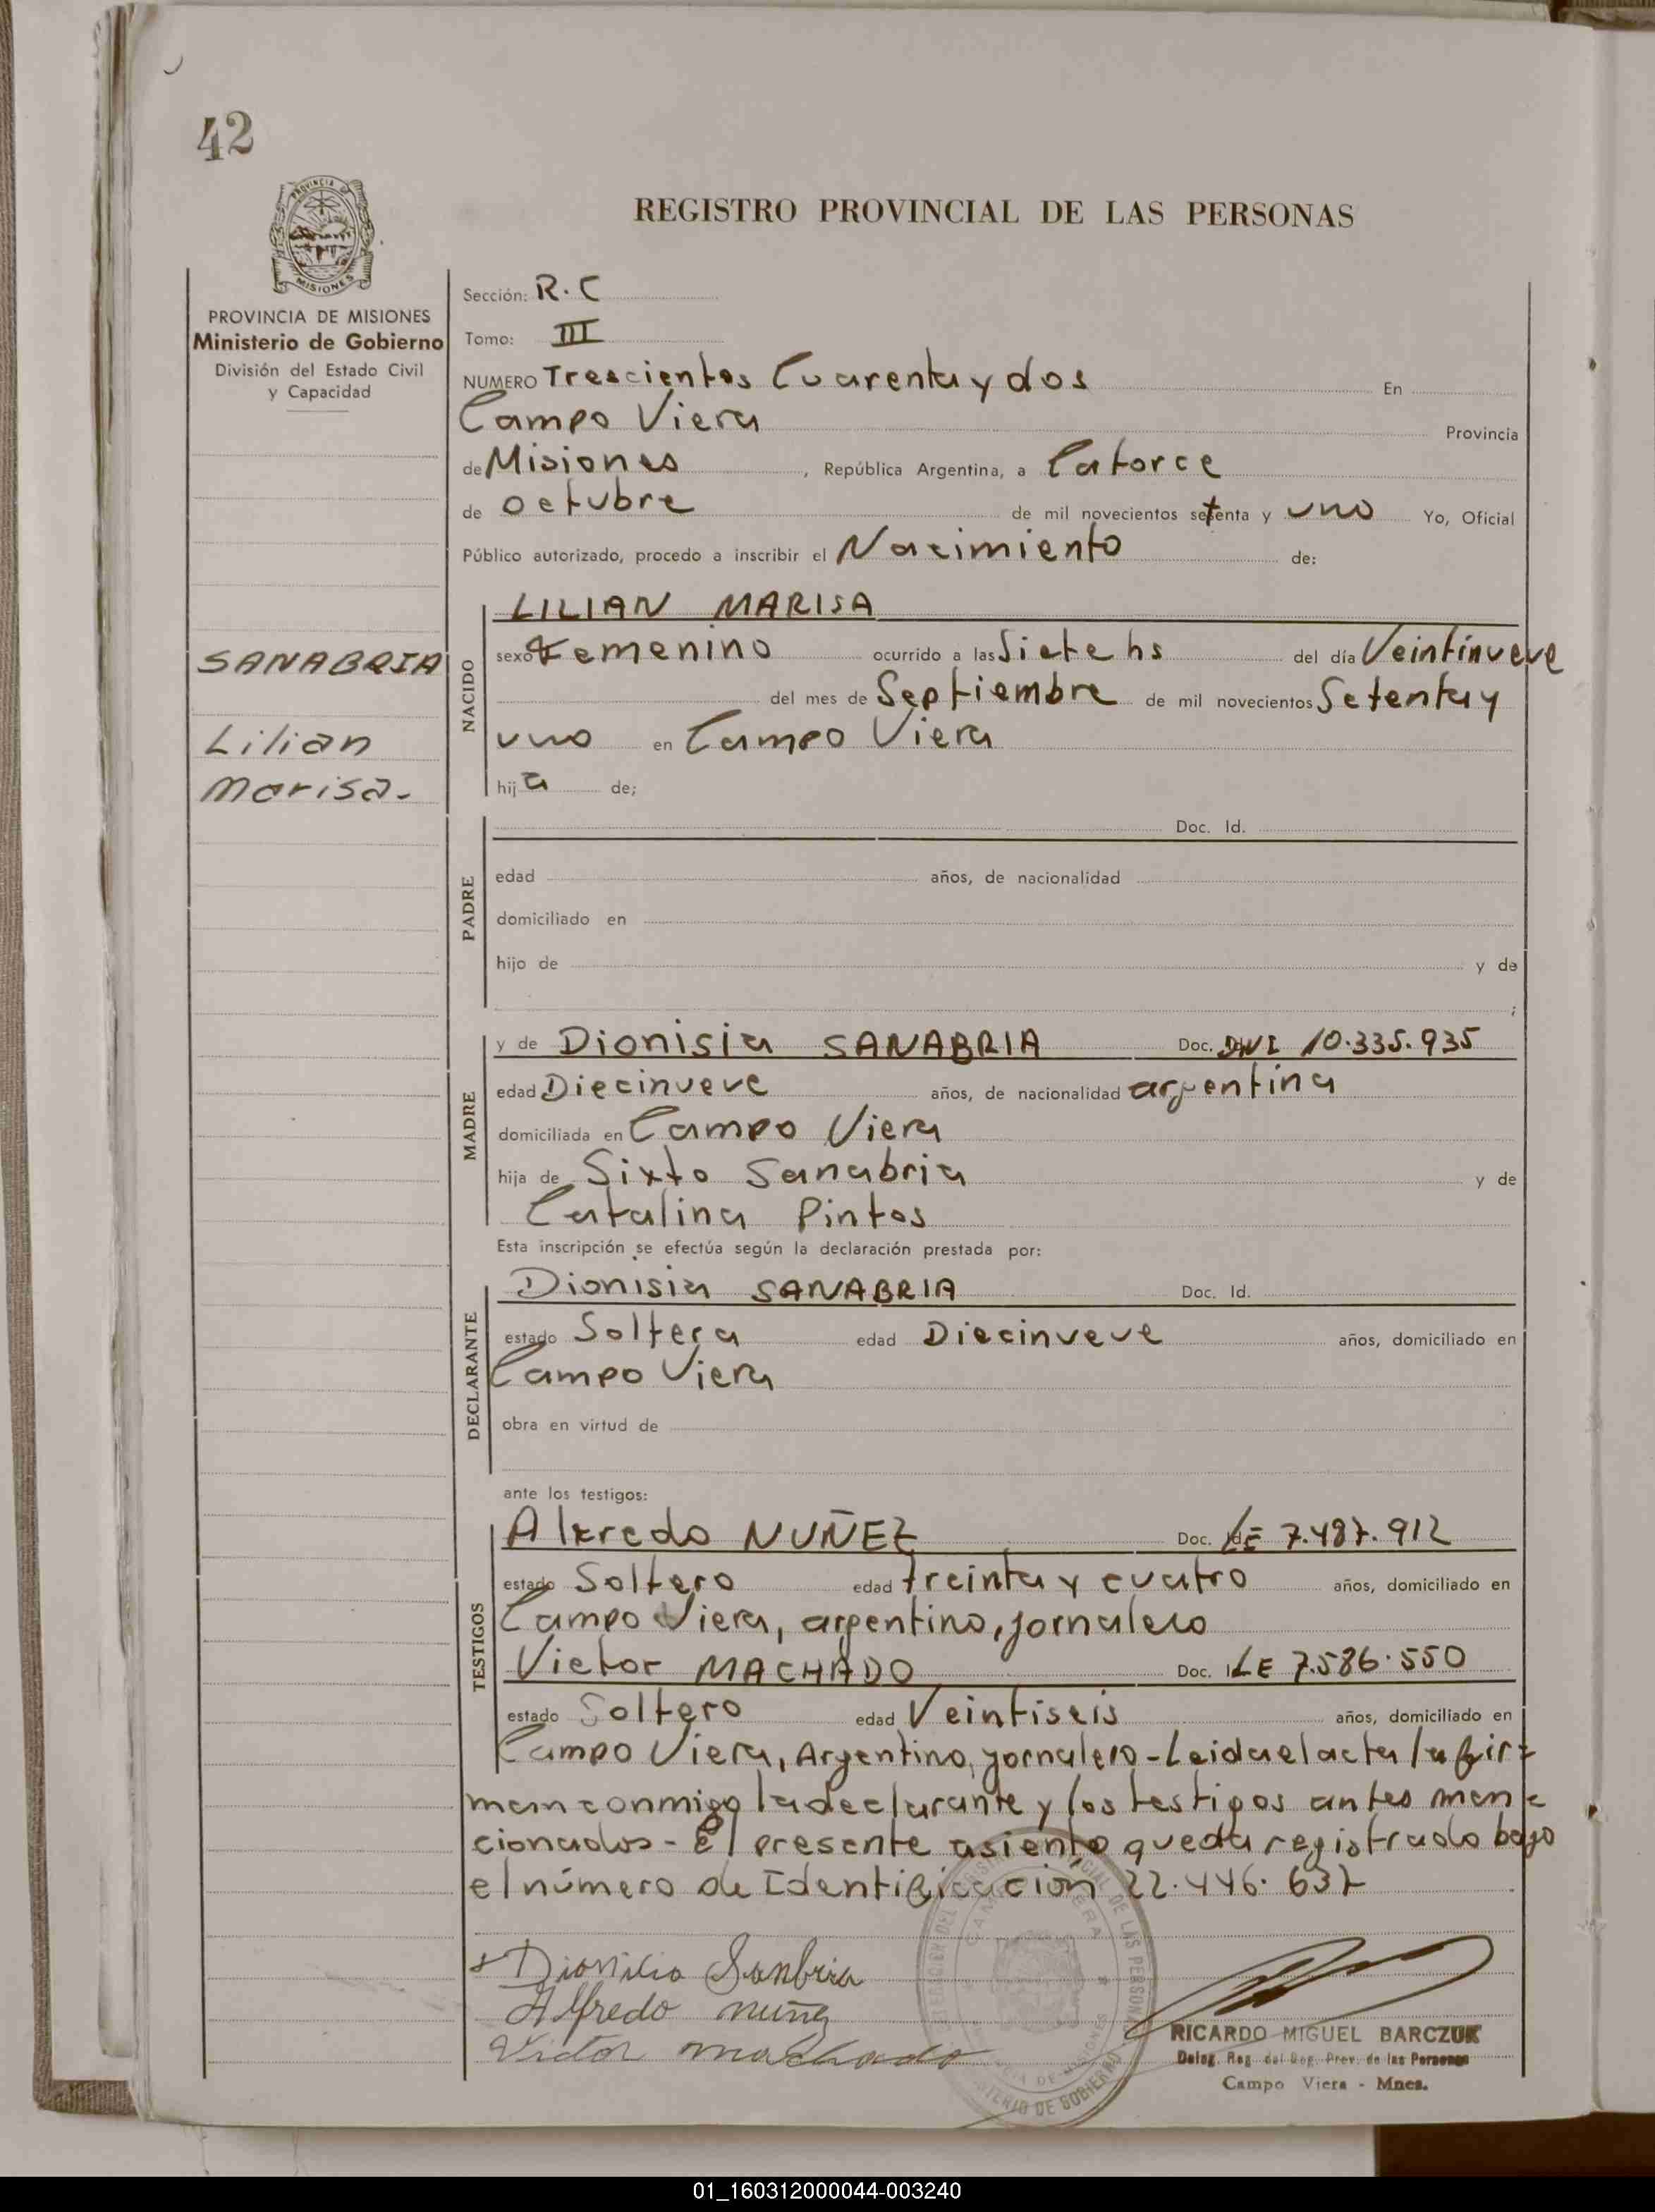 42
PROVINCIA DE
MISIONES
REGISTRO PROVINCIAL DE LAS PERSONAS
PROVINCIA DE MISIONES
Ministerio de Gobierno
División del Estado Civil
y Capacidad
SANABRIA
Lilian
Marisa.
Sección: R.C
Tomo: III
NUMERO Trescientos Cuarenta y dos En
Campo Viera Provincia
de Misiones, República Argentina, a Catorce
de octubre de mil novecientos setenta y uno Yo, Oficial
Público autorizado, procedo a inscribir el Nacimiento de:
NACIDO
LILIAN MARISA
sexo Femenino ocurrido a las Siete hs del día Veintinueve
del mes de Septiembre de mil novecientos Setenta y
uno en Campo Viera
hija de;
PADRE
Doc. Id.
edad años, de nacionalidad
domiciliado en
hijo de y de
;
MADRE
y de Dionisia SANABRIA Doc. DNI 10.335.935
edad Diecinueve años, de nacionalidad argentina
domiciliada en Campo Viera
hija de Sixto Sanabria y de
Catalina Pintos
Esta inscripción se efectúa según la declaración prestada por:
DECLARANTE
Dionisia SANABRIA Doc. Id.
estado Soltera edad Diecinueve años, domiciliado en
Campo Viera
obra en virtud de
ante los testigos:
TESTIGOS
Alfredo NUÑEZ Doc. LE 7.487.912
estado Soltero edad treinta y cuatro años, domiciliado en
Campo Viera, argentino, jornalero
Victor MACHADO Doc. LE 7.586.550
estado Soltero edad Veintiseis años, domiciliado en
Campo Viera, Argentino, jornalero - Leida el acta la fir=
man conmigo la declarante y los testigos antes men=
cionados - El presente asiento queda registrado bajo
el número de Identificación 22.446.637
Dionisia Sanbria
Alfredo nuñez
Victor machado
RICARDO MIGUEL BARCZUK
Deleg. Reg. del Reg. Prov. de las Personas
Campo Viera - Mnes.
01_160312000044-003240